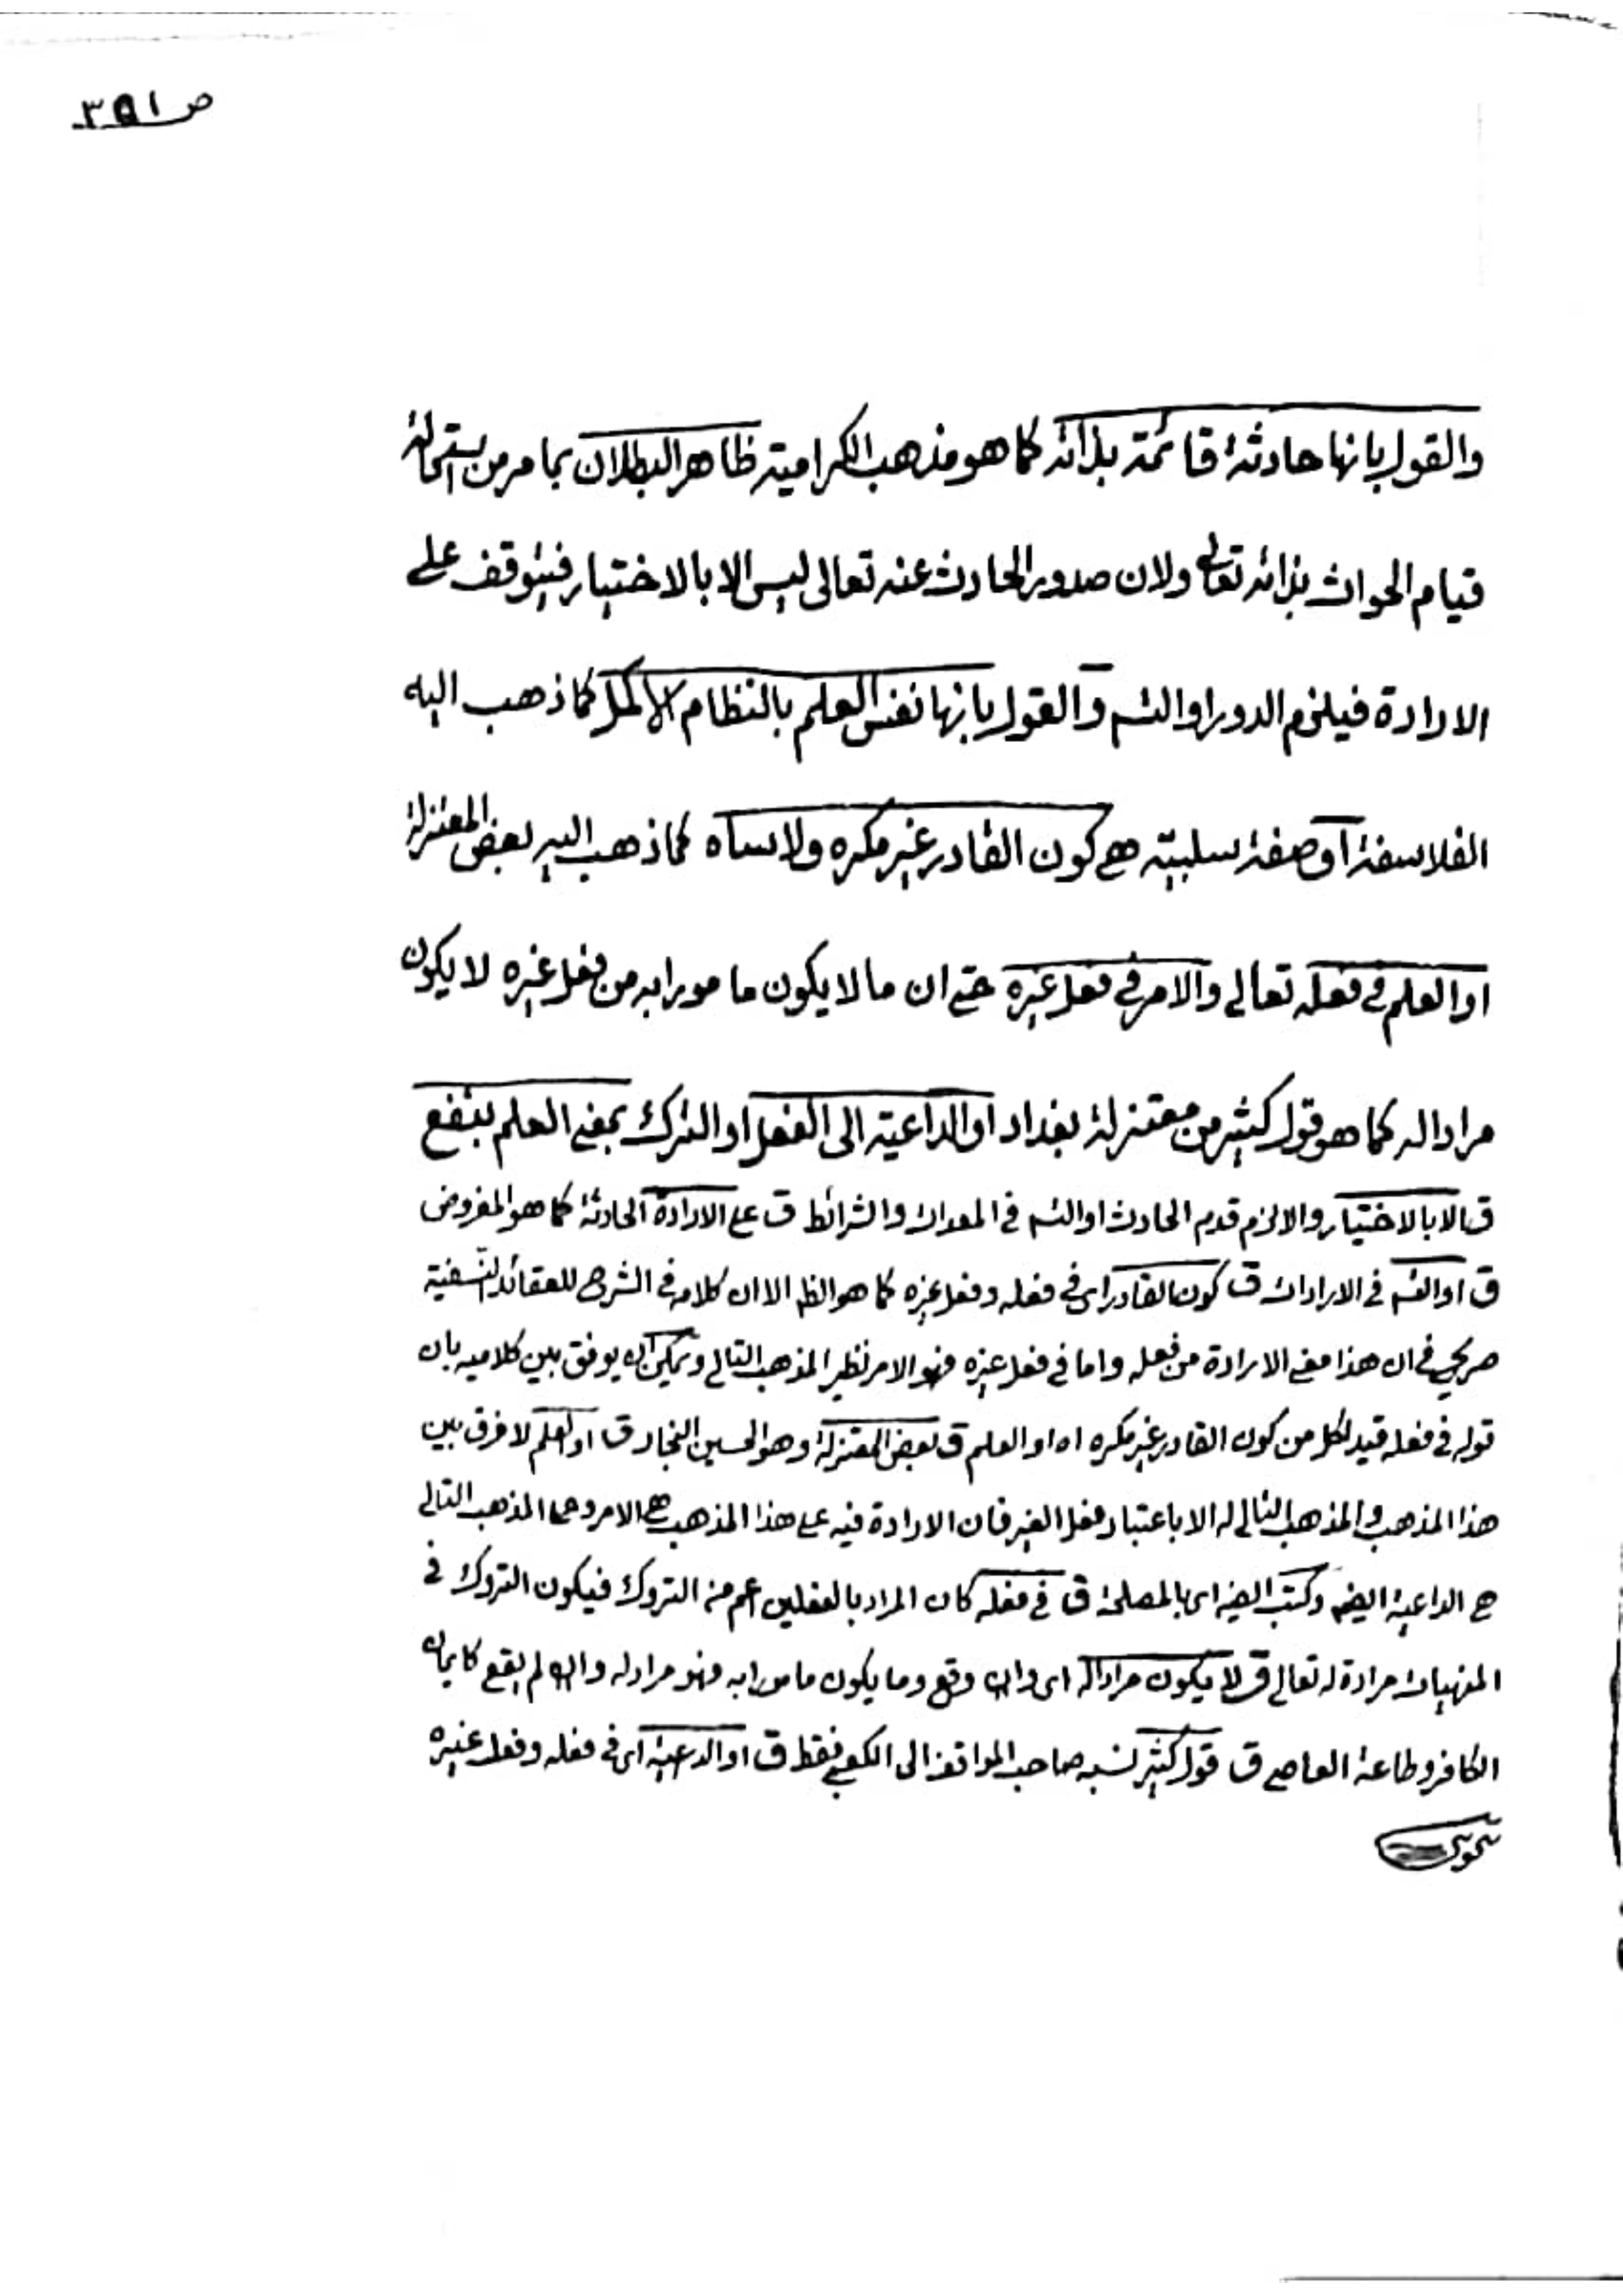 ص ٣٥١
والقول بانها حادثة قائمة بذاته كما هو مذهب الكرامية ظاهر البطلان بما مر من استحالة
قيام الحواث بذاته تعالى ولان صدور الحادث عنه تعالى ليس الا بالاختيار فيتوقف على
الارادة فيلزم الدور او التسم والقول بانها نفس العلم بالنظام الاكمل كما ذهب اليه
الفلاسفة او صفة سلبية هي كون القادر غير مكره ولا ساه كما ذهب اليه بعض المعتزلة
او العلم في فعله تعالى والامر في فعل غيره حتى ان ما لا يكون مامورا به من فعل غيره لا يكون
مرادا له كما هو قول كثير من معتزلة بغداد او الداعية الى الفعل او الترك بمعنى العلم بنفع
ق الا بالاختيار والا لزم قدم الحادث او التسم في المعدات والشرائط ق على الارادة الحادثة كما هو المفروض
ق او التسم في الارادات ق كون القادر اى في فعله وفعل غيره كما هو الظم الا ان كلامه في الشرح للعقائد النسفية
صريح في ان هذا معنى الارادة من فعله واما في فعل غيره فهو الامر نظير المذهب التالي ويمكن ان يوفق بين كلاميه بان
قوله في فعله قيد لكل من كون القادر غير مكره اه او العلم ق بعض المعتزلة وهو الحسين النجار ق او العلم لا فرق بين
هذا المذهب والمذهب التالي له الا باعتبار فعل الغير فان الارادة فيه على هذا المذهب هي الامر وعلى المذهب التالي
هي الداعية ايضم وكتب ايضا اى بالمصلحة ق في فعله كان المراد بالفعلين اعم من التروك فيكون التروك في
المنهيات مرادة له تعالى ق لا يكون مرادا له اى وان وقع وما يكون مامورا به فهو مراد له وان لم يقع كايمان
الكافر وطاعة العاصي ق قول كثير نسبه صاحب المواقف الى الكعبي فقط ق او الداعية اى في فعله وفعل غيره